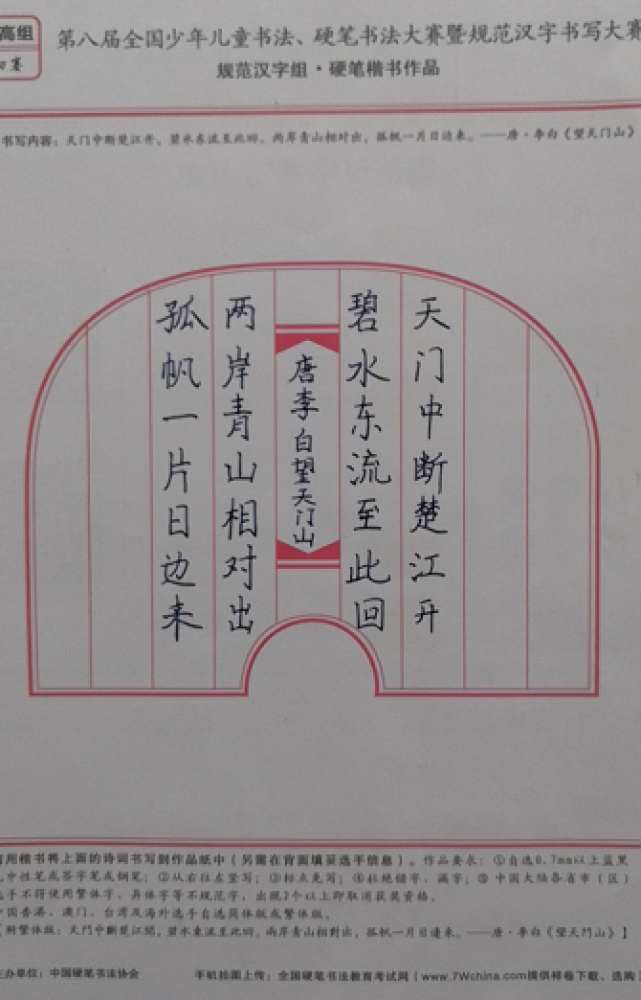 高组
初赛
第八届全国少年儿童书法、硬笔书法大赛暨规范汉字书写大赛
规范汉字组·硬笔楷书作品
书写内容:天门中断楚江开,碧水东流至此回。两岸青山相对出,孤帆一片日边来。——唐·李白《望天门山》
天门中断楚江开
碧水东流至此回
唐李白望天门山
两岸青山相对出
孤帆一片日边来
用楷书将上面的诗词书写到作品纸中(另需在背面填妥选手信息)。作品要求:①自选0.7mm以上蓝黑
中性笔或签字笔或钢笔;②从右往左竖写;③标点免写;④杜绝错字、漏字;⑤中国大陆各省市(区)
手不得使用繁体字、异体字等不规范字,出现1个以上即取消获奖资格。
国香港、澳门、台湾及海外选手自选简体版或繁体版。
附繁体版:天門中斷楚江開,碧水東流至此回。兩岸青山相對出,孤帆一片日邊來。——唐·李白《望天門山》】
办单位:中国硬笔书法协会
手机拍图上传:全国硬笔书法教育考试网(www.7Wchina.com提供样卷下载、选购